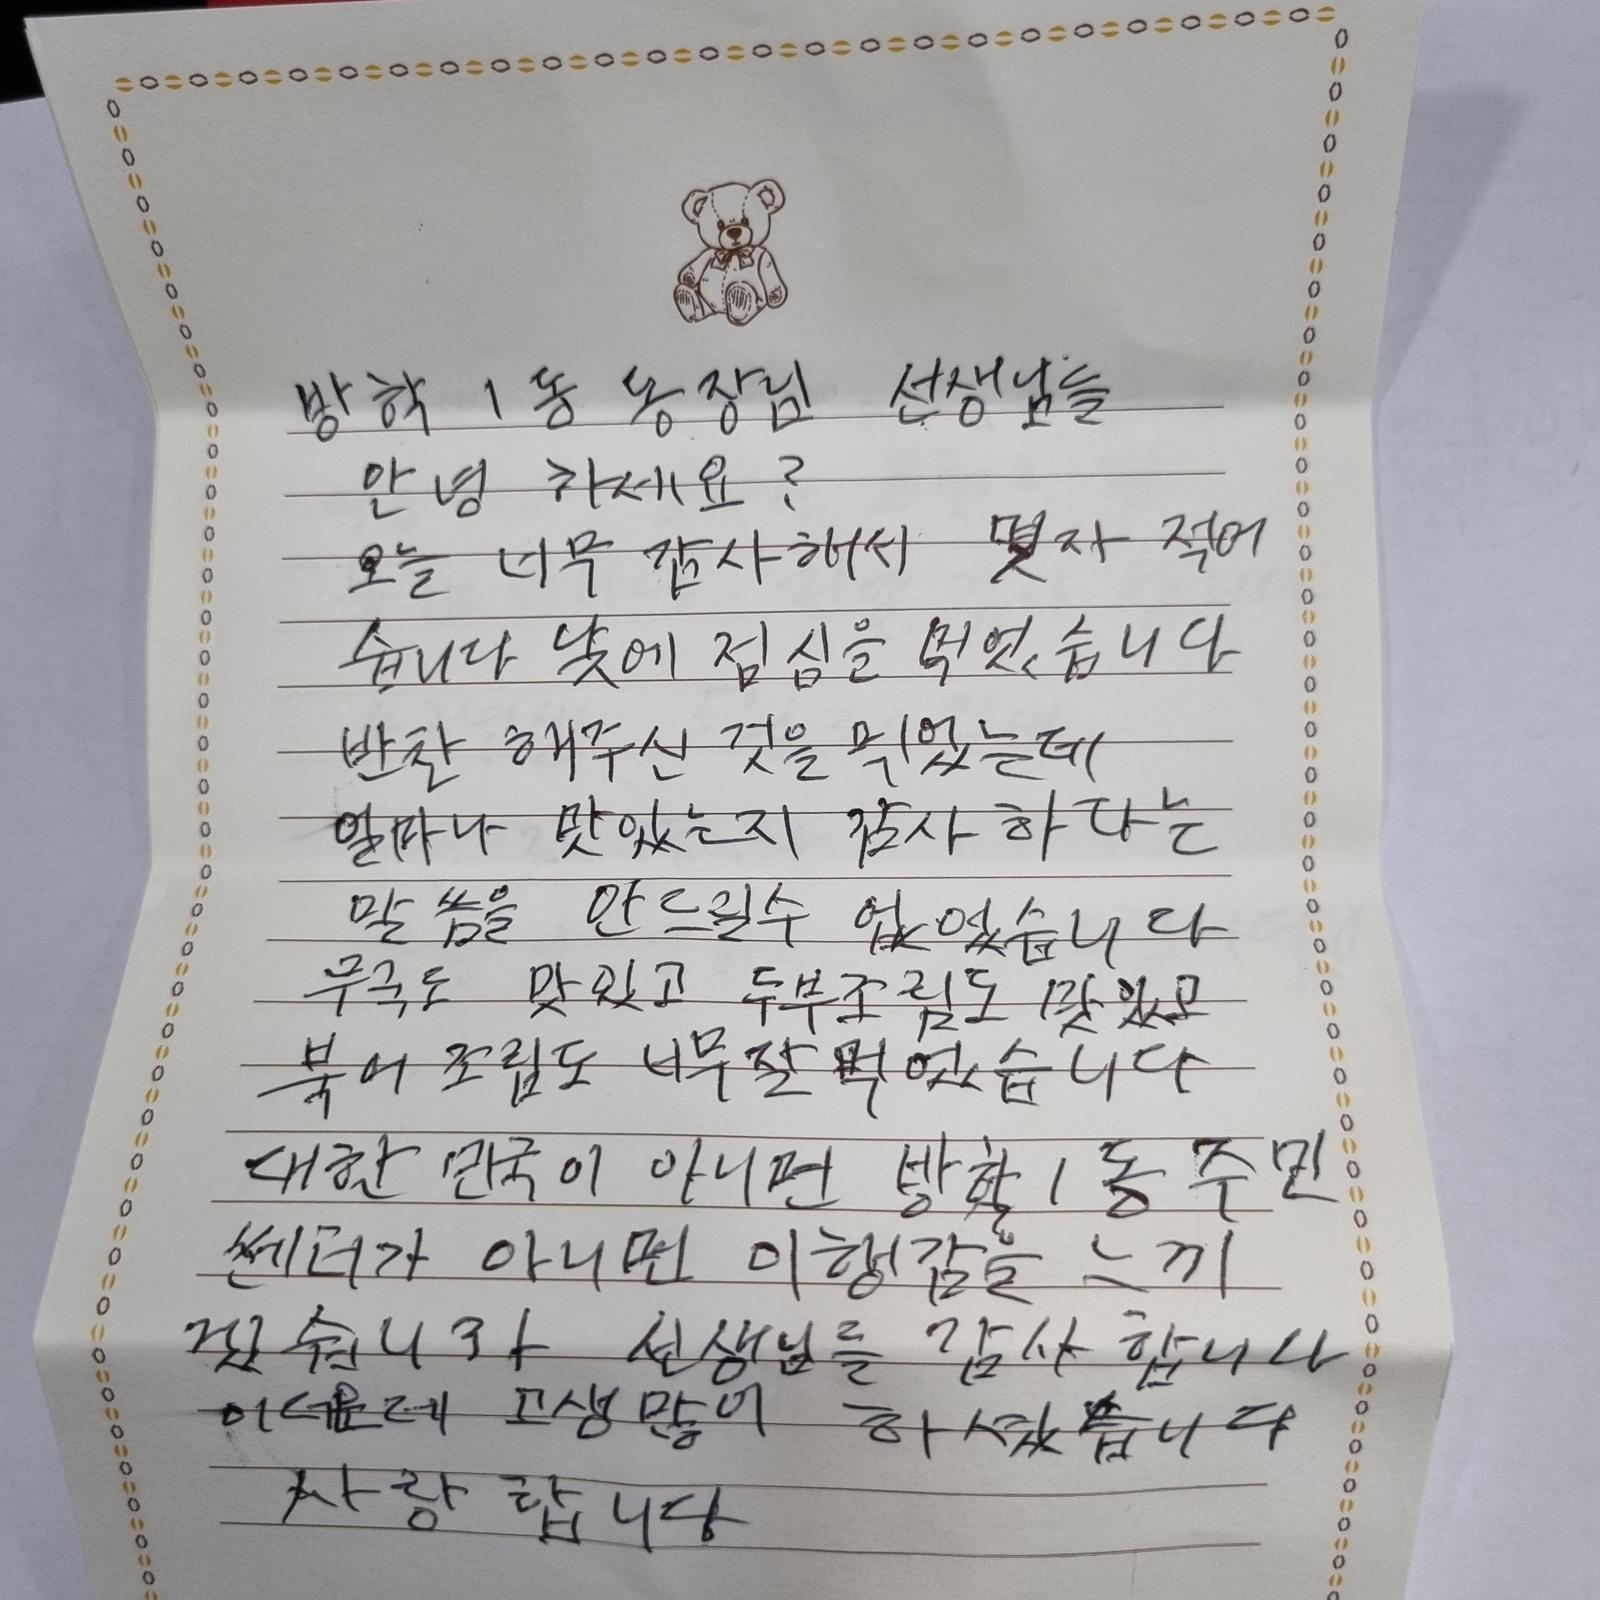 방학 1동 동장님 선생님들
안녕 하세요?
오늘 너무 감사해서 몇자 적어
습니다 낮에 점심을 먹었습니다
반찬 해주신 것을 먹었는데
얼마나 맛있는지 감사하다는
말씀을 안드릴수 없었습니다
무국도 맛있고 두부조림도 맛있고
북어 조림도 너무잘 먹었습니다
대한 민국이 아니면 방학1동 주민
쎈터가 아니면 이행감을 느끼
겠습니까 선생님들 감사합니다
이더운데 고생많이 하셨습니다
사랑 합니다